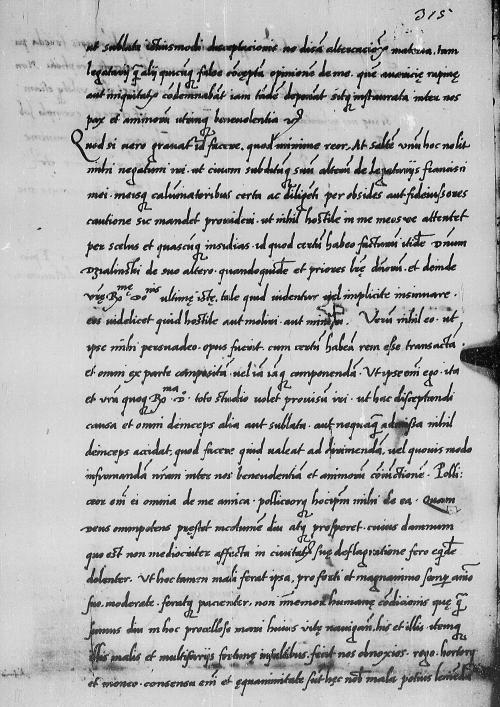 315
ut sublata istiusmodi disceptacionis no dicā altercaciōis materia. Iam
legatariꝯ q̄ aliꝯ quicūq false cōcepta opinione de me. quē auaricie rapine
aut iniquitatis cōdemnabāt iam tādē deponāt sitq instaurata inter nos
pax et animorū utrinq beneuolentia
Quod si vero grauat id facere, quod minime reor. At saltē unū hoc nolit
mihi negatum iri. ut cuium subditūq suū alterū de legatariis francisci
mei. meisq calūniatoribus certa ac diligēti per obsides aut fideiussores
cautione sic mandet prouideri. ut nihil hostile in me meosve attentet
per scelus et quascūq insidias. id quod certū habeo facturū itidē dnum
de suo altero. quandoquidē et priores lrē duorū. et deinde
vrē Ro. me. do. nis ultime iste, tale quid videntur vel implicite insinuare.
eos videlicet quid hostile aut moliri. aut minari. Verū nihil eo. ut
ipse mihi persuadeo. opus fuerit. cum certū habeā rem esse transactā.
et omni ex parte compositā. vel iā iāq componendā. Ut ipse em̄ ego. ita
et vrā quoq Ro. ma d. toto studio volet prouisum iri. ut hac disceptandi
causa et omni deinceps alia aut sublata. aut nequaq̄ admissa nihil
deinceps accidat, quod facere quid valeat ad dirimendā, vel quouis modo
infirmandā nram inter nos beneuolentiā et animorū cōiūctione. Polli:
ceor em̄ ei omnia de me amica. polliceorq hocipm mihi de ea. Quam
deus omnipotens prestet incolumē diu atq prosperet. cuius damnum
quo est non mediocriter affecta in ciuitatis suę deflagratione fero eqdē
dolenter. Ut hoc tamen mali ferat ipsa, pro forti et magnanimo semp aīo
suo. moderate. feratq pacienter. non īmemor humanę cōdicionis quę q̄
sumus diu in hoc proceloso mari huius vitę nauigantes. his et illis. itemq
illis malis et multifariis fortunę insultibus. fecit nos obnoxios. rogo. hortorq
et moneo. consensu em̄ et equanimitate sut hęc nobis mala potius leuiēda